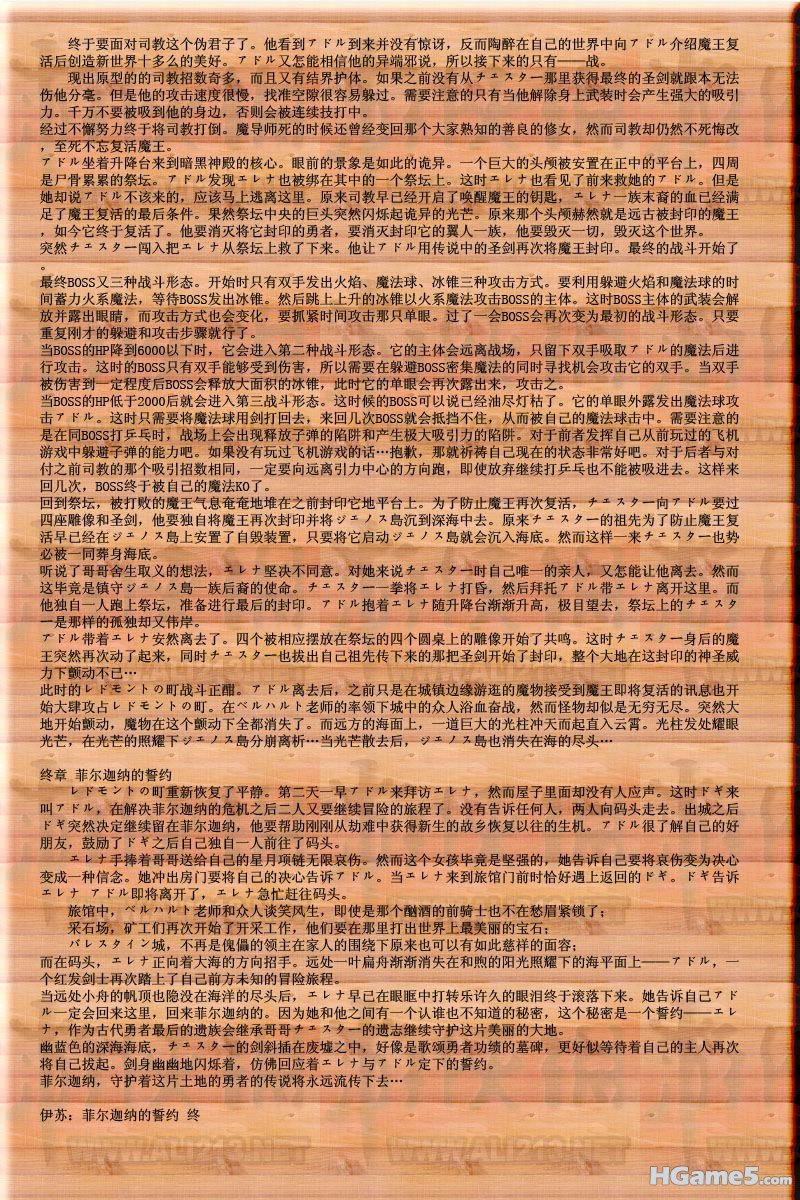 终于要面对司教这个伪君子了。他看到アドル到来并没有惊讶，反而陶醉在自己的世界中向アドル介绍魔王复
活后创造新世界十多么的美好。アドル又怎能相信他的异端邪说，所以接下来的只有——战。
现出原型的的司教招数奇多，而且又有结界护体。如果之前没有从チェスター那里获得最终的圣剑就跟本无法
伤他分毫。但是他的攻击速度很慢，找准空隙很容易躲过。需要注意的只有当他解除身上武装时会产生强大的吸引
力。千万不要被吸到他的身边，否则会被连续技打中。
经过不懈努力终于将司教打倒。魔导师死的时候还曾经变回那个大家熟知的善良的修女，然而司教却仍然不死悔改
，至死不忘复活魔王。
アドル坐着升降台来到暗黑神殿的核心。眼前的景象是如此的诡异。一个巨大的头颅被安置在正中的平台上，四周
是尸骨累累的祭坛。アドル发现エレナ也被绑在其中的一个祭坛上。这时エレナ也看见了前来救她的アドル。但是
她却说アドル不该来的，应该马上逃离这里。原来司教早已经开启了唤醒魔王的钥匙，エレナ一族末裔的血已经满
足了魔王复活的最后条件。果然祭坛中央的巨头突然闪烁起诡异的光芒。原来那个头颅赫然就是远古被封印的魔王
，如今它终于复活了。他要消灭将它封印的勇者，要消灭封印它的翼人一族，他要毁灭一切，毁灭这个世界。
突然チェスター闯入把エレナ从祭坛上救了下来。他让アドル用传说中的圣剑再次将魔王封印。最终的战斗开始了
。
最终BOSS又三种战斗形态。开始时只有双手发出火焰、魔法球、冰锥三种攻击方式。要利用躲避火焰和魔法球的时
间蓄力火系魔法，等待BOSS发出冰锥。然后跳上上升的冰锥以火系魔法攻击BOSS的主体。这时BOSS主体的武装会解
放并露出眼睛，而攻击方式也会变化，要抓紧时间攻击那只单眼。过了一会BOSS会再次变为最初的战斗形态。只要
重复刚才的躲避和攻击步骤就行了。
当BOSS的HP降到6000以下时，它会进入第二种战斗形态。它的主体会远离战场，只留下双手吸取アドル的魔法后进
行攻击。这时的BOSS只有双手能够受到伤害，所以需要在躲避BOSS密集魔法的同时寻找机会攻击它的双手。当双手
被伤害到一定程度后BOSS会释放大面积的冰锥，此时它的单眼会再次露出来，攻击之。
当BOSS的HP低于2000后就会进入第三战斗形态。这时候的BOSS可以说已经油尽灯枯了。它的单眼外露发出魔法球攻
击アドル。这时只需要将魔法球用剑打回去，来回几次BOSS就会抵挡不住，从而被自己的魔法球击中。需要注意的
是在同BOSS打乒乓时，战场上会出现释放子弹的陷阱和产生极大吸引力的陷阱。对于前者发挥自己从前玩过的飞机
游戏中躲避子弹的能力吧。如果没有玩过飞机游戏的话…抱歉，那就祈祷自己现在的状态非常好吧。对于后者与对
付之前司教的那个吸引招数相同，一定要向远离引力中心的方向跑，即使放弃继续打乒乓也不能被吸进去。这样来
回几次，BOSS终于被自己的魔法KO了。
回到祭坛，被打败的魔王气息奄奄地堆在之前封印它地平台上。为了防止魔王再次复活，チェスター向アドル要过
四座雕像和圣剑，他要独自将魔王再次封印并将ジェノス島沉到深海中去。原来チェスター的祖先为了防止魔王复
活早已经在ジェノス島上安置了自毁装置，只要将它启动ジェノス島就会沉入海底。然而这样一来チェスター也势
必被一同葬身海底。
听说了哥哥舍生取义的想法，エレナ坚决不同意。对她来说チェスター时自己唯一的亲人，又怎能让他离去。然而
这毕竟是镇守ジェノス島一族后裔的使命。チェスター一拳将エレナ打昏，然后拜托アドル带エレナ离开这里。而
他独自一人跑上祭坛，准备进行最后的封印。アドル抱着エレナ随升降台渐渐升高，极目望去，祭坛上的チェスタ
ー是那样的孤独却又伟岸。
アドル带着エレナ安然离去了。四个被相应摆放在祭坛的四个圆桌上的雕像开始了共鸣。这时チェスター身后的魔
王突然再次动了起来，同时チェスター也拔出自己祖先传下来的那把圣剑开始了封印，整个大地在这封印的神圣威
力下颤动不已…
此时的レドモントの町战斗正酣。アドル离去后，之前只是在城镇边缘游逛的魔物接受到魔王即将复活的讯息也开
始大肆攻占レドモントの町。在ベルハルト老师的率领下城中的众人浴血奋战，然而怪物却似是无穷无尽。突然大
地开始颤动，魔物在这个颤动下全都消失了。而远方的海面上，一道巨大的光柱冲天而起直入云霄。光柱发处耀眼
光芒，在光芒的照耀下ジェノス島分崩离析…当光芒散去后，ジェノス島也消失在海的尽头…
终章 菲尔迦纳的誓约
レドモントの町重新恢复了平静。第二天一早アドル来拜访エレナ，然而屋子里面却没有人应声。这时ドギ来
叫アドル，在解决菲尔迦纳的危机之后二人又要继续冒险的旅程了。没有告诉任何人，两人向码头走去。出城之后
ドギ突然决定继续留在菲尔迦纳，他要帮助刚刚从劫难中获得新生的故乡恢复以往的生机。アドル很了解自己的好
朋友，鼓励了ドギ之后自己独自一人前往了码头。
エレナ手捧着哥哥送给自己的星月项链无限哀伤。然而这个女孩毕竟是坚强的，她告诉自己要将哀伤变为决心
变成一种信念。她冲出房门要将自己的决心告诉アドル。当エレナ来到旅馆门前时恰好遇上返回的ドギ。ドギ告诉
エレナ アドル即将离开了，エレナ急忙赶往码头。
旅馆中，ベルハルト老师和众人谈笑风生，即使是那个酗酒的前骑士也不在愁眉紧锁了；
采石场，矿工们再次开始了开采工作，他们要在那里打出世界上最美丽的宝石；
バレスタイン城，不再是傀儡的领主在家人的围绕下原来也可以有如此慈祥的面容；
而在码头，エレナ正向着大海的方向招手。远处一叶扁舟渐渐消失在和煦的阳光照耀下的海平面上——アドル，一
个红发剑士再次踏上了自己前方未知的冒险旅程。
当远处小舟的帆顶也隐没在海洋的尽头后，エレナ早已在眼眶中打转乐许久的眼泪终于滚落下来。她告诉自己アド
ル一定会回来这里，回来菲尔迦纳的。因为她和他之间有一个认谁也不知道的秘密，这个秘密是一个誓约——エレ
ナ，作为古代勇者最后的遗族会继承哥哥チェスター的遗志继续守护这片美丽的大地。
幽蓝色的深海海底，チェスター的剑斜插在废墟之中，好像是歌颂勇者功绩的墓碑，更好似等待着自己的主人再次
将自己拔起。剑身幽幽地闪烁着，仿佛回应着エレナ与アドル定下的誓约。
菲尔迦纳，守护着这片土地的勇者的传说将永远流传下去…
伊苏：菲尔迦纳的誓约 终
HGame5.com